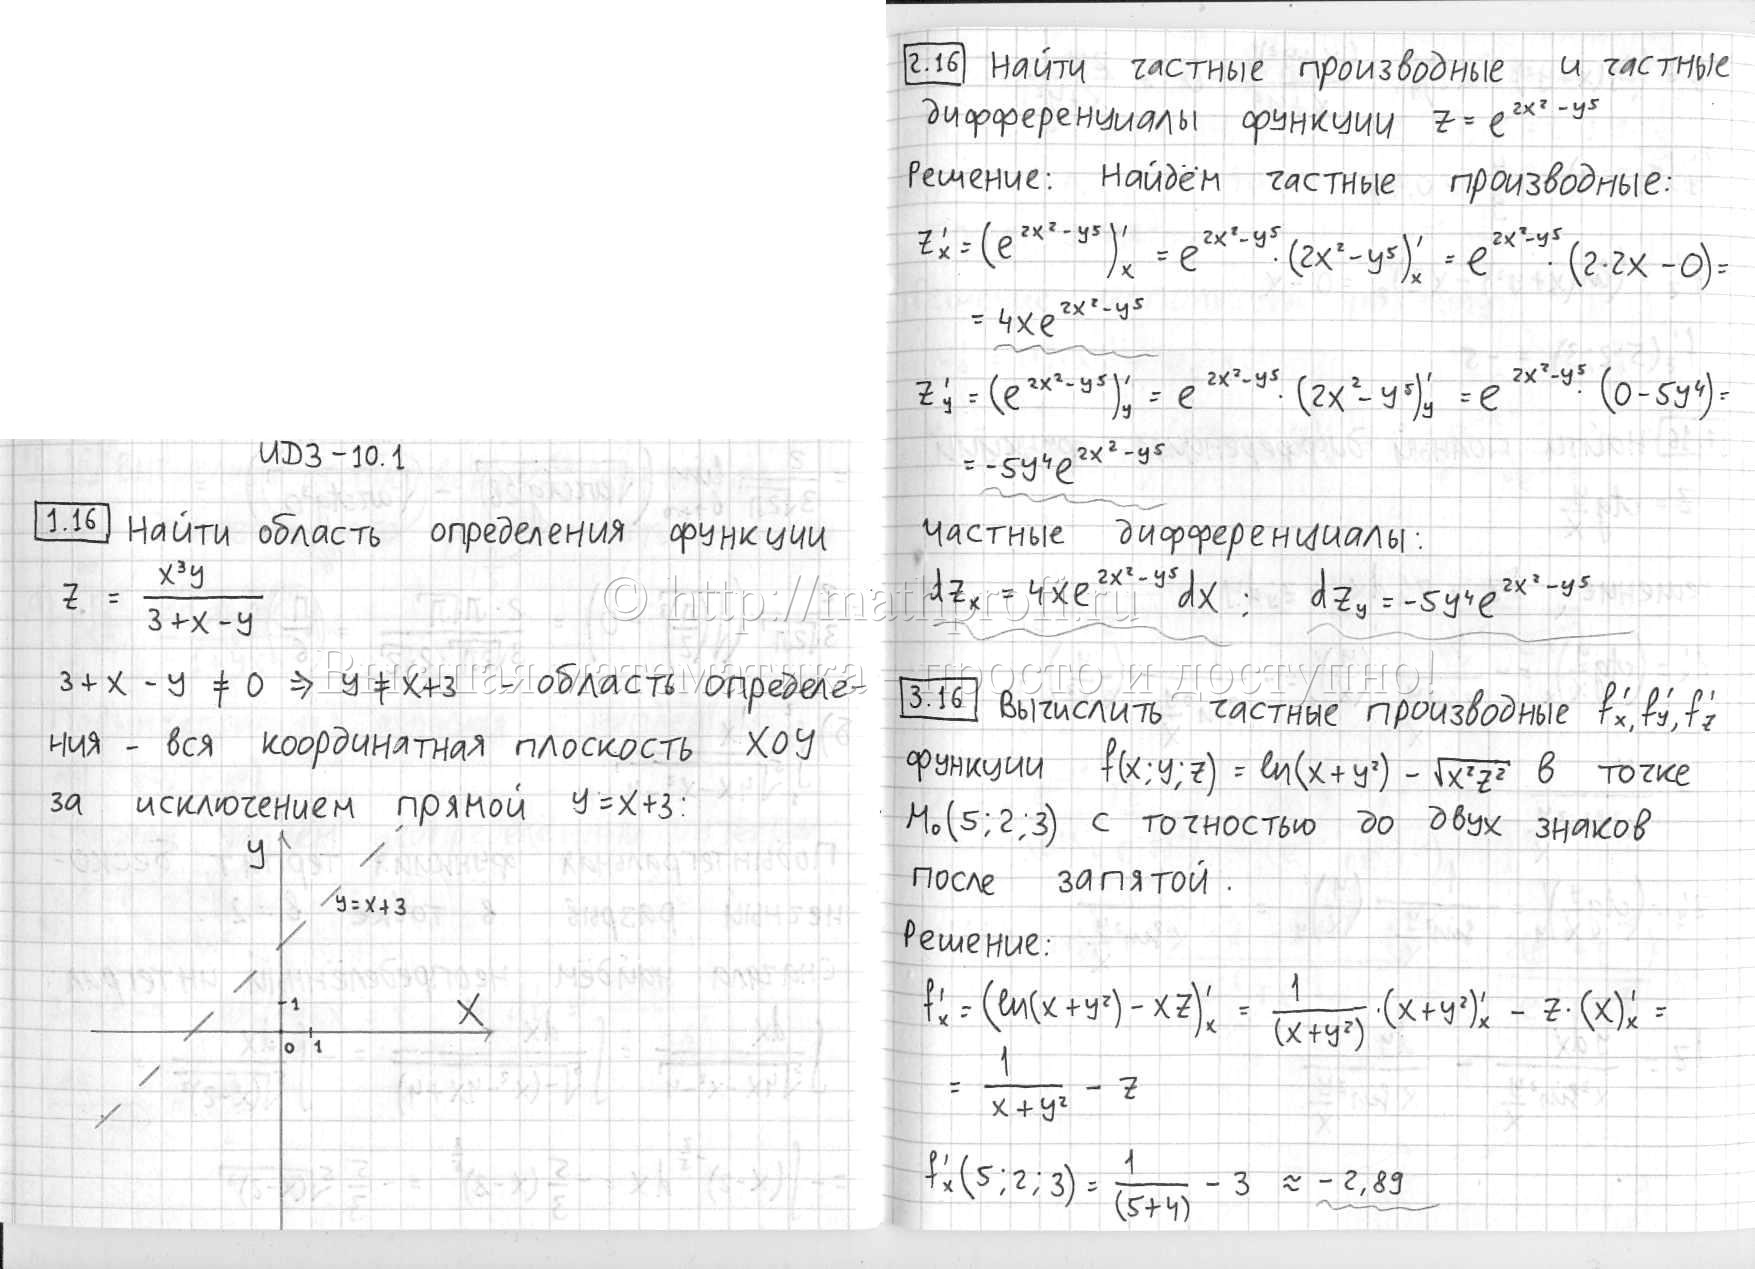 ИДЗ – 10.1
1.16 Найти область определения функции
z = x³y / (3+x-y)
3+x-y ≠ 0 ⇒ y ≠ x+3 - область определе-
ния - вся координатная плоскость XOY
за исключением прямой y=x+3:
y
y=x+3
1
X
0 1
2.16 Найти частные производные и частные
дифференциалы функции z = e^(2x²-y⁵)
Решение: Найдём частные производные:
z'ₓ = (e^(2x²-y⁵))'ₓ = e^(2x²-y⁵)·(2x²-y⁵)'ₓ = e^(2x²-y⁵)·(2·2x-0)=
= 4xe^(2x²-y⁵)
z'_y = (e^(2x²-y⁵))'_y = e^(2x²-y⁵)·(2x²-y⁵)'_y = e^(2x²-y⁵)·(0-5y⁴)=
= -5y⁴e^(2x²-y⁵)
Частные дифференциалы:
dzₓ = 4xe^(2x²-y⁵)dx; dz_y = -5y⁴e^(2x²-y⁵)
© http://mathprofi.ru
Высшая математика – просто и доступно!
3.16 Вычислить частные производные f'ₓ, f'_y, f'_z
функции f(x;y;z) = ln(x+y²) - √(x²z²) в точке
M₀(5;2;3) с точностью до двух знаков
после запятой.
Решение:
f'ₓ = (ln(x+y²) - xz)'ₓ = 1/(x+y²)·(x+y²)'ₓ - z·(x)'ₓ =
= 1/(x+y²) - z
f'ₓ(5;2;3) = 1/(5+4) - 3 ≈ -2,89